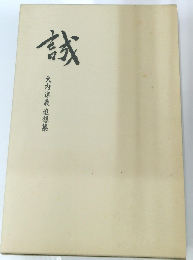 誠
大内洋義追想集